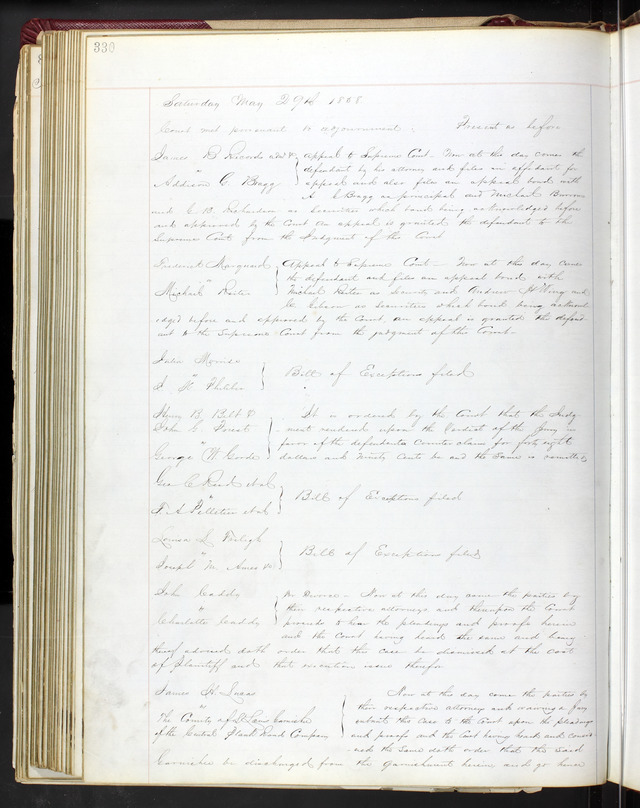 330
Saturday May 29th 1868
Court met pursuant to adjournment. Present as before
James B Records
vs
Addison C Bragg
Appeal to Supreme Court - Now at this day comes the
defendant by his attorney and files an affidavit for
appeal and also files an appeal bond with
A C Bragg as principal and Michael
and C B Richardson as securities which bond being acknowledged before
and approved by the Court an appeal is granted the defendant to the
Supreme Court from the Judgment of this Court
Frederick Marquard
vs
Michael Reiter
Appeal to Supreme Court - Now at this day comes
the defendant and files an appeal bond with
Michael Reiter as and Andrew H Wing and
as securities which bond being acknowl
edged before and approved by the Court an appeal is granted the defend
ant to the Supreme Court from the judgment of this Court.
Julia
vs
J H Fletcher
Bill of Exceptions filed
Henry B Belt &
John G Priest
vs
George W Goode
It is ordered by the Court that the Judg
ment rendered upon the Verdict of the Jury in
favor of the defendants Counter claim for forty eight
dollars and ninety cents be and the same is remitted
Geo C Rand et al
vs
T. S Pelletier et al
Bill of Exceptions filed
Louisa L
vs
Joseph M Ames
Bill of Exceptions filed
John Caddy
vs
Charlotte Caddy
In Divorce - Now at this day come the parties by
their respective attorneys and thereupon the Court
proceeds to hear the pleadings and proofs herein
and the Court having heard the same and being
thereof advised doth order that the case be dismissed at the cost
of Plaintiff and that execution issue therefor
James H Lucas
vs
The County of St Louis Garnishee
of the Central Plank Road Company
Now at this day come the parties by
their respective attorneys and waiving a jury
submits this case to the Court upon the pleadings
and proofs and the Court having heard and consid
ered the same doth order that the said
Garnishee be discharged from the garnishment herein and go hence